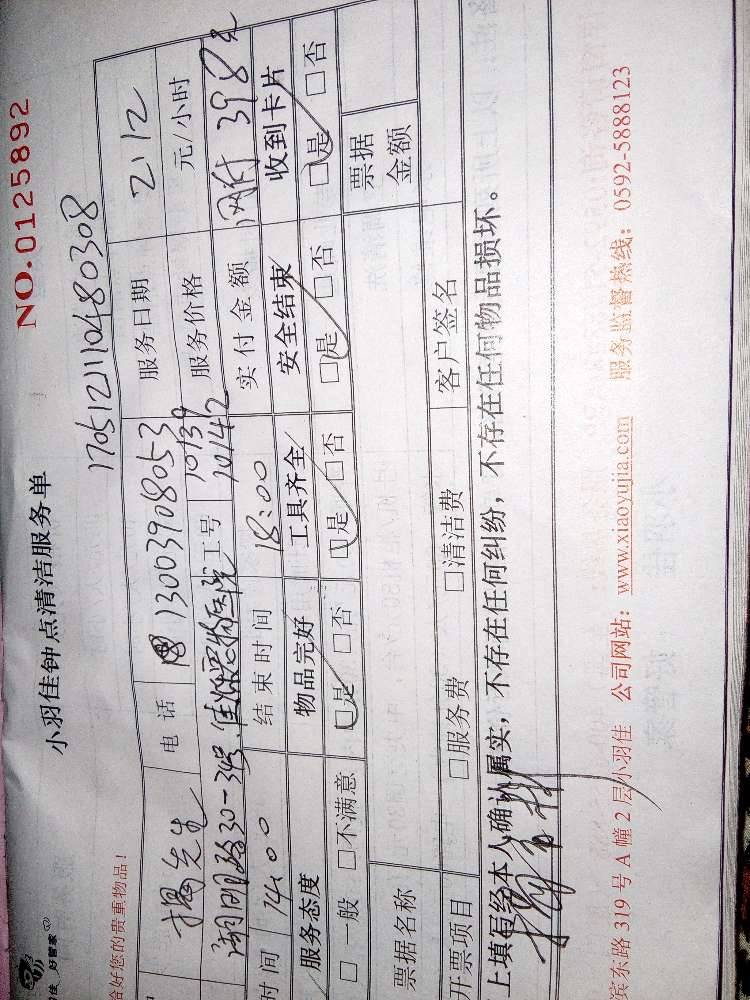 小羽佳钟点清洁服务单
NO.0125892
佳 好管家
1705121110480308
合好您的贵重物品！
先生 电话 13003908053 服务日期 2.12
湖明路30-34号 佳 医院 工号 10139 10142 服务价格 元/小时
时间 14:00 结束时间 18:00 实付金额 网付 398元
服务态度 物品完好 工具齐全 安全结束 收到卡片
□一般 □不满意 □是 □否 □是 □否 □是 □否 □是 □否
票据名称 票据金额
开票项目 □服务费 □清洁费 客户签名
上填写经本人确认属实，不存在任何纠纷，不存在任何物品损坏。
宾东路 319 号 A 幢 2 层小羽佳 公司网站：www.xiaoyujia.com 服务监督热线：0592-5888123